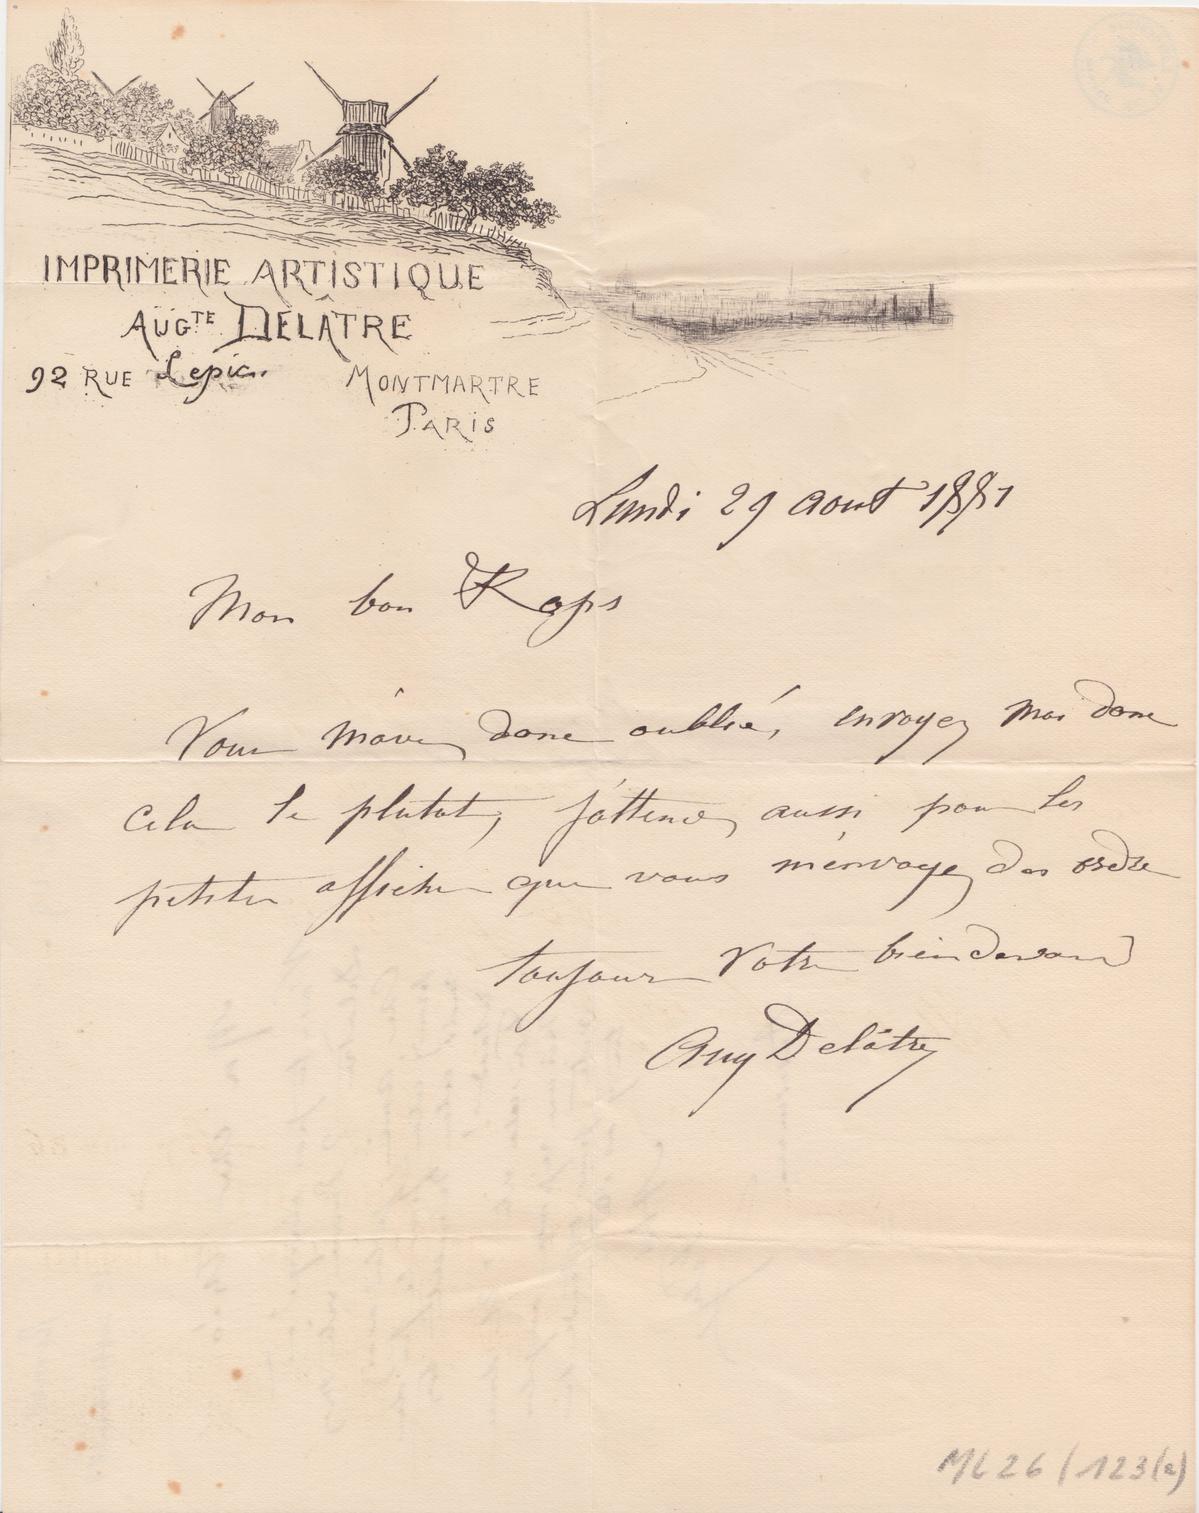 IMPRIMERIE ARTISTIQUE
AUGTE DELÂTRE
92 RUE Lepic.
MONTMARTRE
PARIS
Lundi 29 aout 1881
Mon bon Rops
Vous m'avez donc oublié, envoyez moi donc
cela le plutot, j'attend, aussi pour les
petites affiches que vous m'envoyez des ordre
toujours votre bien devoué
Aug Delâtre
ML 26 / 123(a)